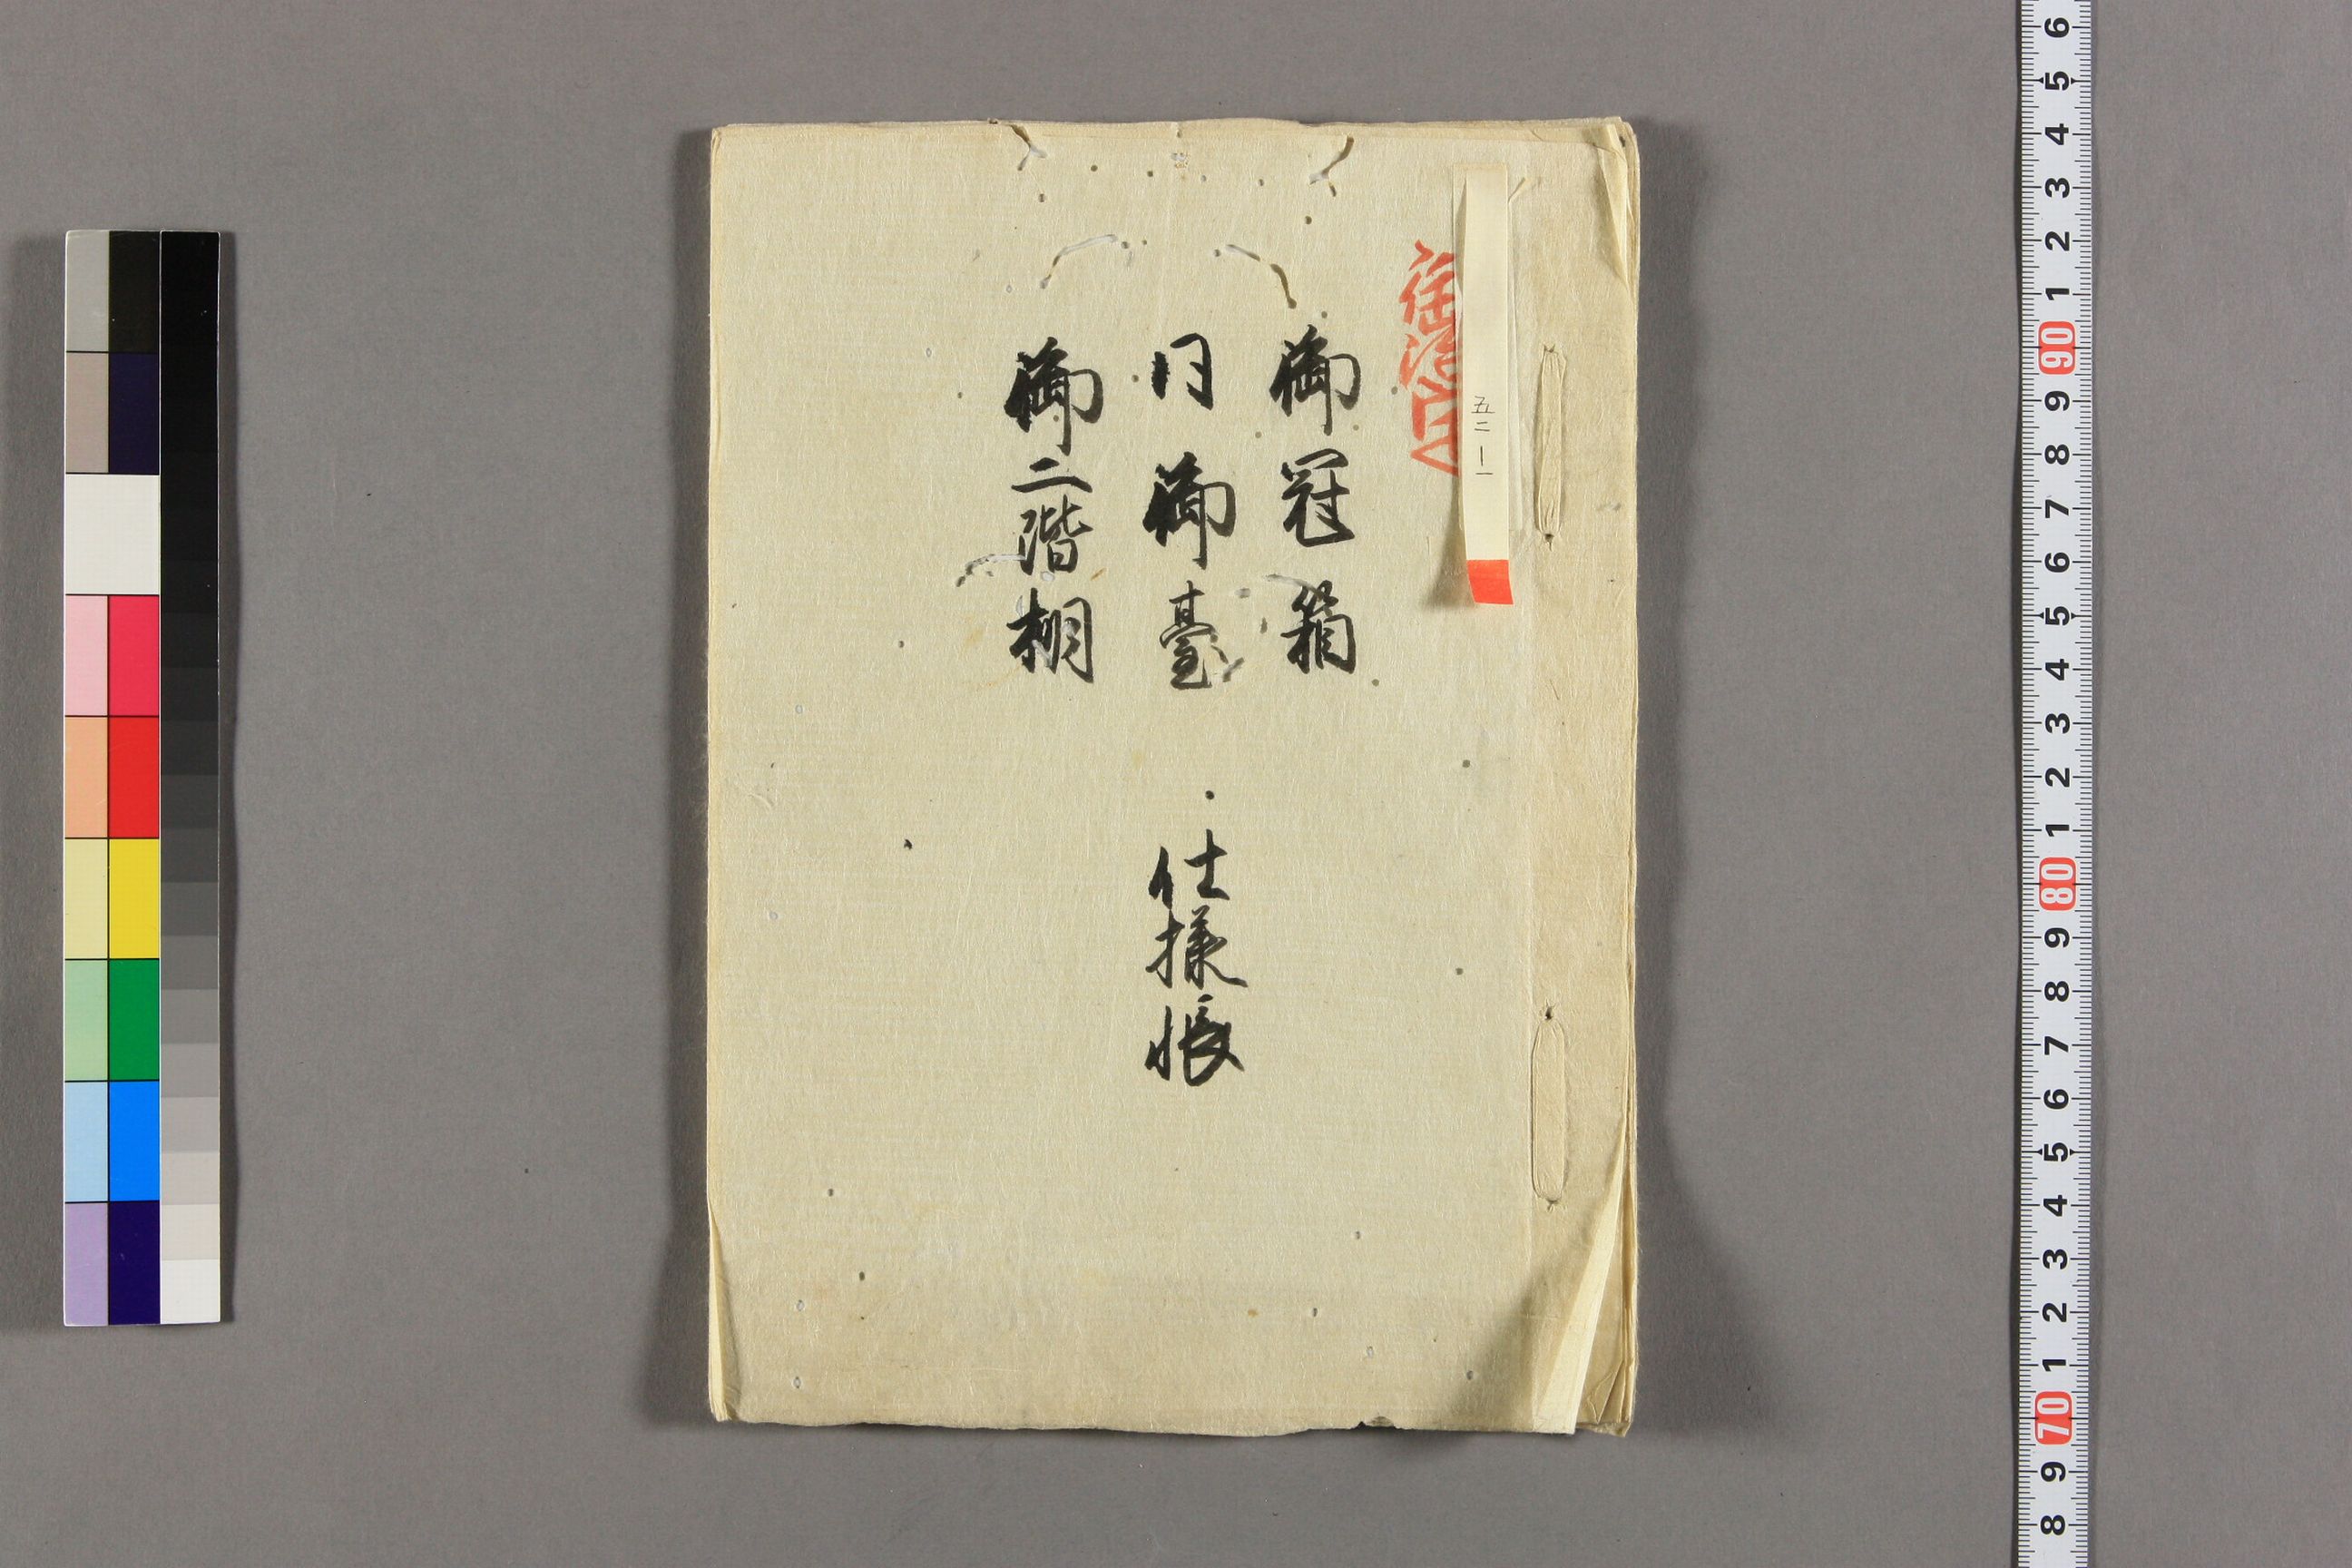 五二一一
御冠箱
同御臺
御二階棚
仕様帳
6
5
4
3
2
1
90
9
8
7
6
5
4
3
2
1
80
9
8
7
6
5
4
3
2
1
70
9
8